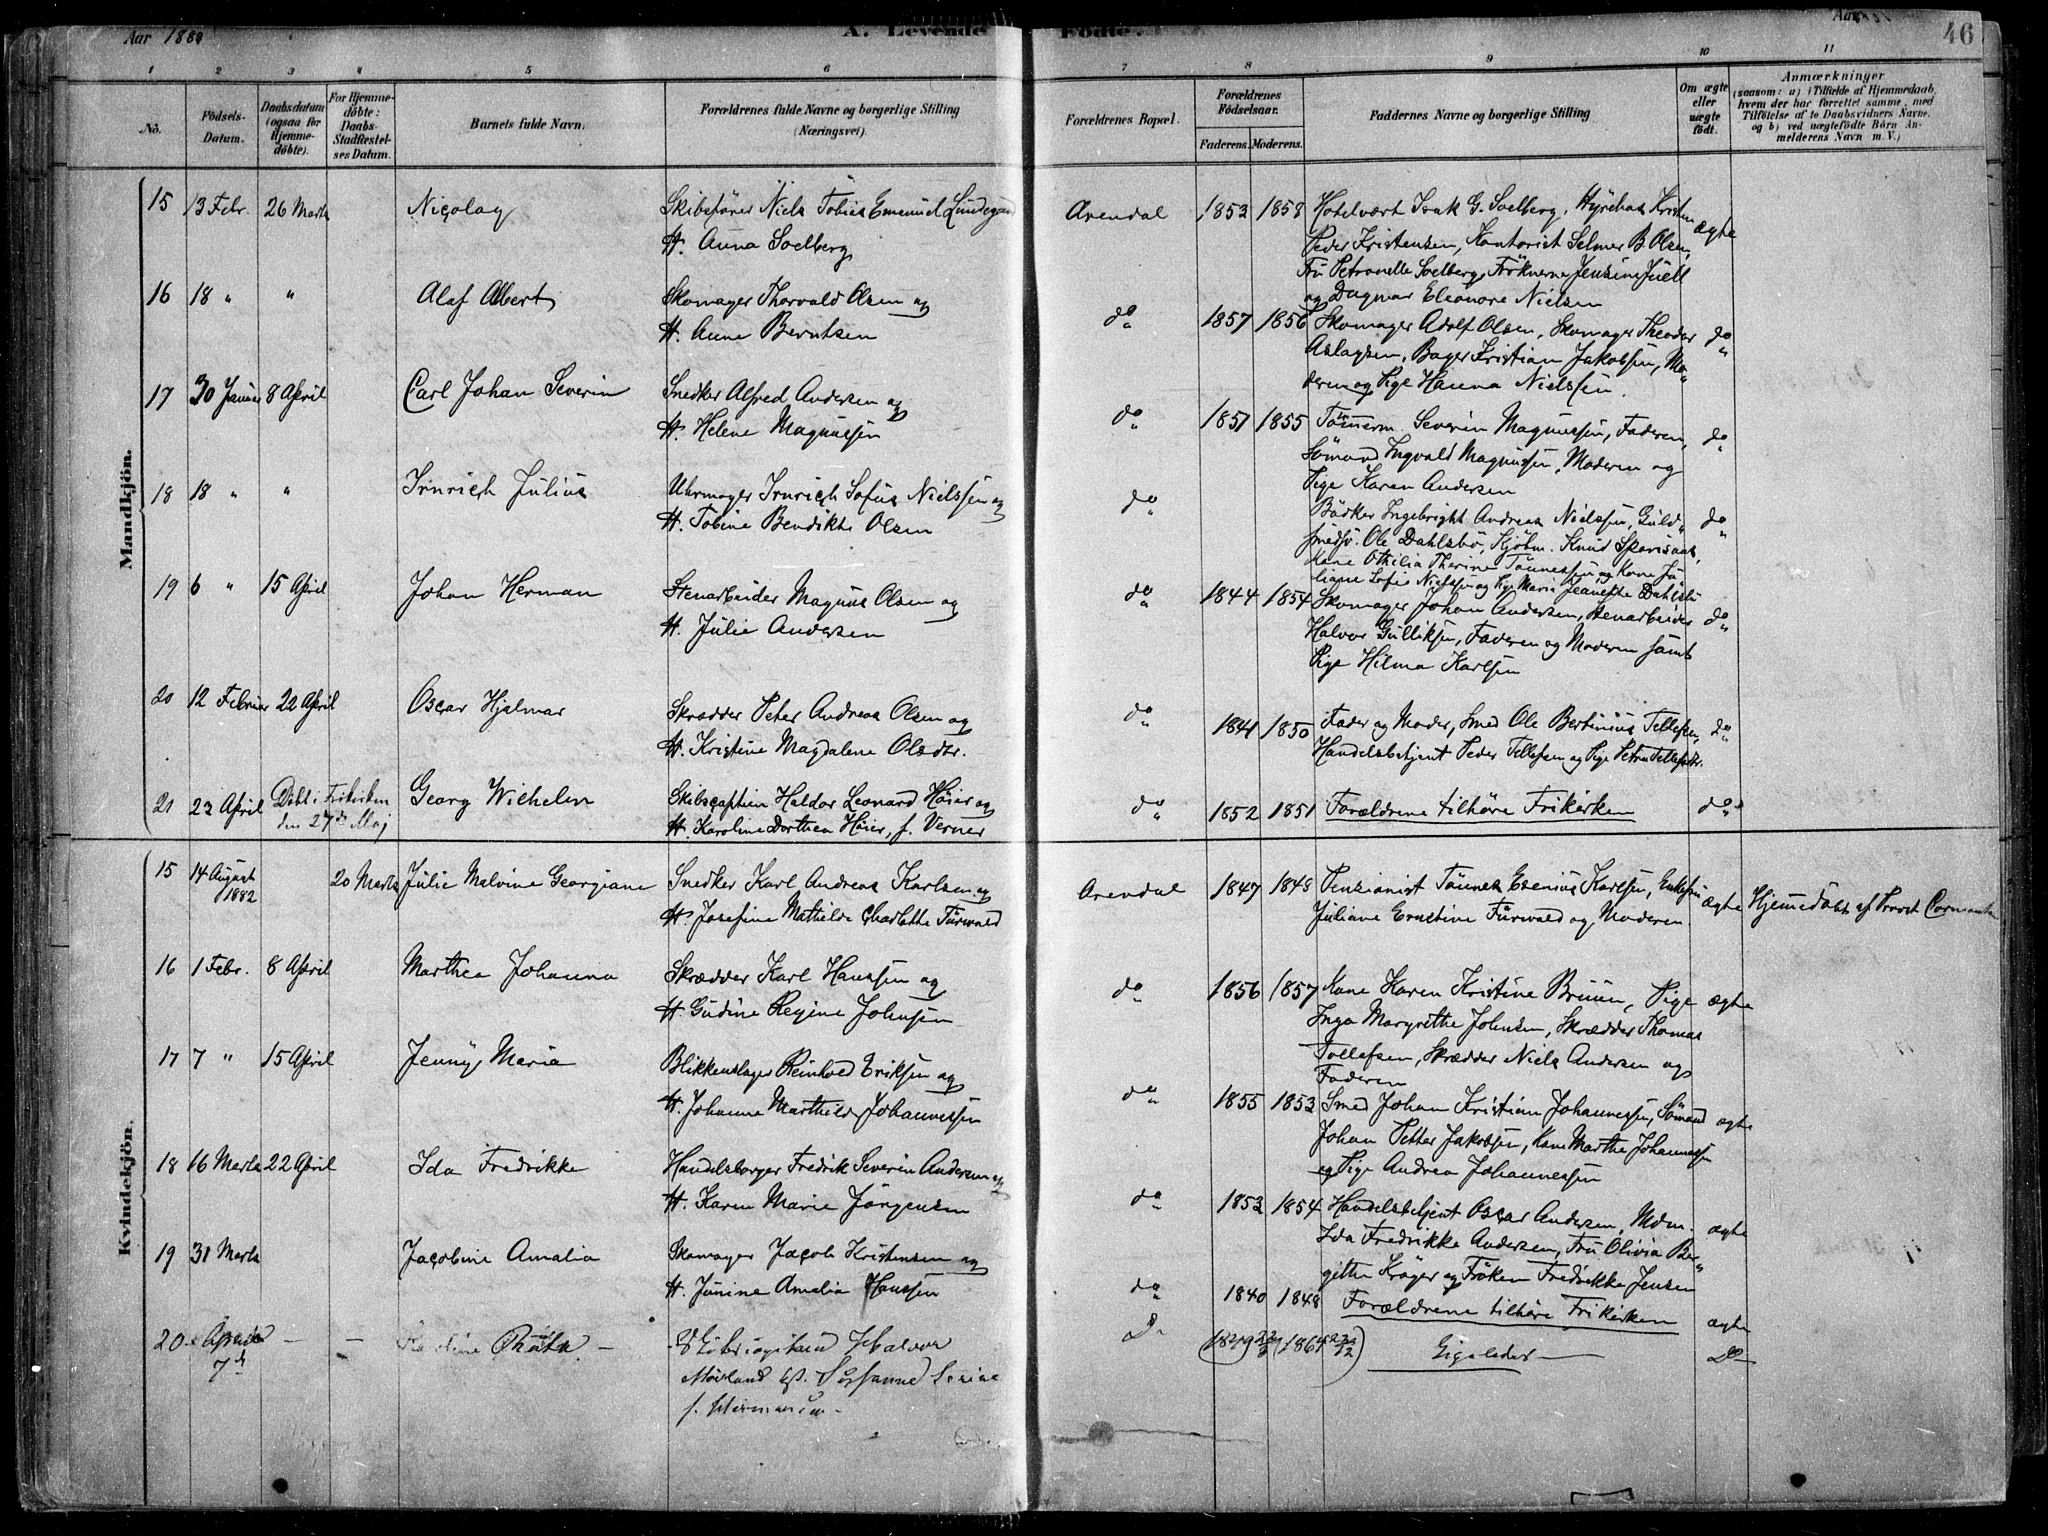 Aar 188
A. Levende Födte.
Aar
46
1 2 3 4 5 6 7 8 9 10 11
No.
Födsels-Datum.
Daabsdatum (ogsaa for Hjemmedöbte).
For Hjemmedöbte: Daabs-Stadfæstelses Datum.
Barnets fulde Navn.
Forældrenes fulde Navne og borgerlige Stilling (Næringsvei).
Forældrenes Bopæl.
Forældrenes Födselsaar.
Faderens. Moderens.
Faddernes Navne og borgerlige Stilling
Om ægte eller uægte födt.
Anmærkninger (saasom: a) i Tilfælde af Hjemmedaab, hvem der har forrettet samme, med Tilföielse af to Daabsvidners Navne, og b) ved uægtefödte Börn Anmelderens Navn m. V.)
Mandkjön.
15 13 Febr. 26 Marts Nicolay Skibsfører Niels Tobias Emanuel
H. Anna Soelberg
Arendal 1853 1858 Hotelvært Isak G. Soelberg, Kristen ægte
Peder Kristensen, Kontorist Selmer B Olsen,
Fru Petronelle Soelberg, Frøknerne Jensine Juell
og Dagmar Eleonore Nielsen
16 18 " " Alaf Albert Skomager Thorvald Olsen og
H. Anne Berntsen
do 1857 1856 Skomager Adolf Olsen, Skomager Theodor do
Aslagsen, Bager Kristian Jakobsen, Mo-
deren og Pige Hanna Nielssen.
17 30 Januar 8 April Carl Johan Severin Snedker Alfred Andersen og
H. Helene Magnussen
do 1851 1855 Tømmerm. Severin Magnussen, Faderen, do
Sømand Ingvald Magnussen, Moderen og
Pige Karen Andersen
18 18 " " Inrich Julius Uhrmager Inrich Sofus Nielssen og
H. Tobine Bendikte Olsen
do Bødker Ingebright Andreas Nielssen, Guld- do
smedsv. Ole Dahlsbø, Kjøbm. Knud
Kone Othilia Therine Tønnessen og Kone Ju-
liane Sofie Nielssen og Pige Maria Jeanette Dahlsbø
19 6 " 15 April Johan Herman Stenarbeider Magnus Olsen og
H. Julie Andersen
do 1844 1854 Skomager Johan Andersen, Stenarbeider do
Halvor Gulliksen, Faderen og Moderen samt
Pige Hilma Karlsen
20 12 Februar 22 April Oscar Hjalmar Skrædder Peter Andreas Olsen og
H. Kristine Magdalene Olsdtr.
do 1841 1850 Fader og Moder, Smed Ole Bertinius Tellefsen, do
Handelsbetjent Peder Tellefsen og Pige Petra Tellefsdtr.
21 23 April Døbt i Frikirken den 27de Maj Georg Wilhelm Skibscaptein Haldor Leonard Høier og
H. Karoline Dorthea Høier, f. Verner
do 1852 1851 Forældrene tilhøre Frikirken do
Kvindekjön.
15 14 August 1882 20 Marts Julie Malvine Georgiane Snedker Karl Andreas Karlsen og
H. Josefine Mathilde Charlotte Fürwald
Arendal 1847 1848 Pensionist Tønnes Esenius Karlsen, Enkefru ægte Hjemmedøbt af Provst
Juliane Ernstine Fürwald og Moderen
16 1 Febr. 8 April Marthea Johanna Skrædder Karl Hanssen og
H. Gudine Regine Johnsen
do 1856 1857 Kone Karen Kristine Bruun, Pige ægte
Inga Margrethe Johnsen, Skrædder Thomas
Tollefsen, Skrædder Niels Andersen og
Faderen
17 7 " 15 April Jenny Maria Blikkenslager Reinhold Eriksen og
H. Johanne Mathilde Johannessen
do 1855 1853 Smed Johan Kristian Johannessen, Sømand ægte
Johan Petter Jakobsen, Kone Marthe Johannessen
og Pige Andrea Johannessen
18 16 Marts 22 April Ida Fredrikke Handelsborger Fredrik Severin Andersen og
H. Karen Marie Jørgensen
do 1853 1854 Handelsbetjent Oscar Andersen, Mdm. ægte
Ida Fredrikke Andersen, Fru Olivia Be-
githe Krøger og Frøken Fredrikke Jensen
19 31 Marts Jacobine Amalia Skomager Jacob Kristensen og
H. Junine Amalia Hanssen
do 1840 1848 Forældrene tilhøre Frikirken ægte
20 7de – – Ruth – Halvor
H. Susanne
f.
Do Ligeledes Do